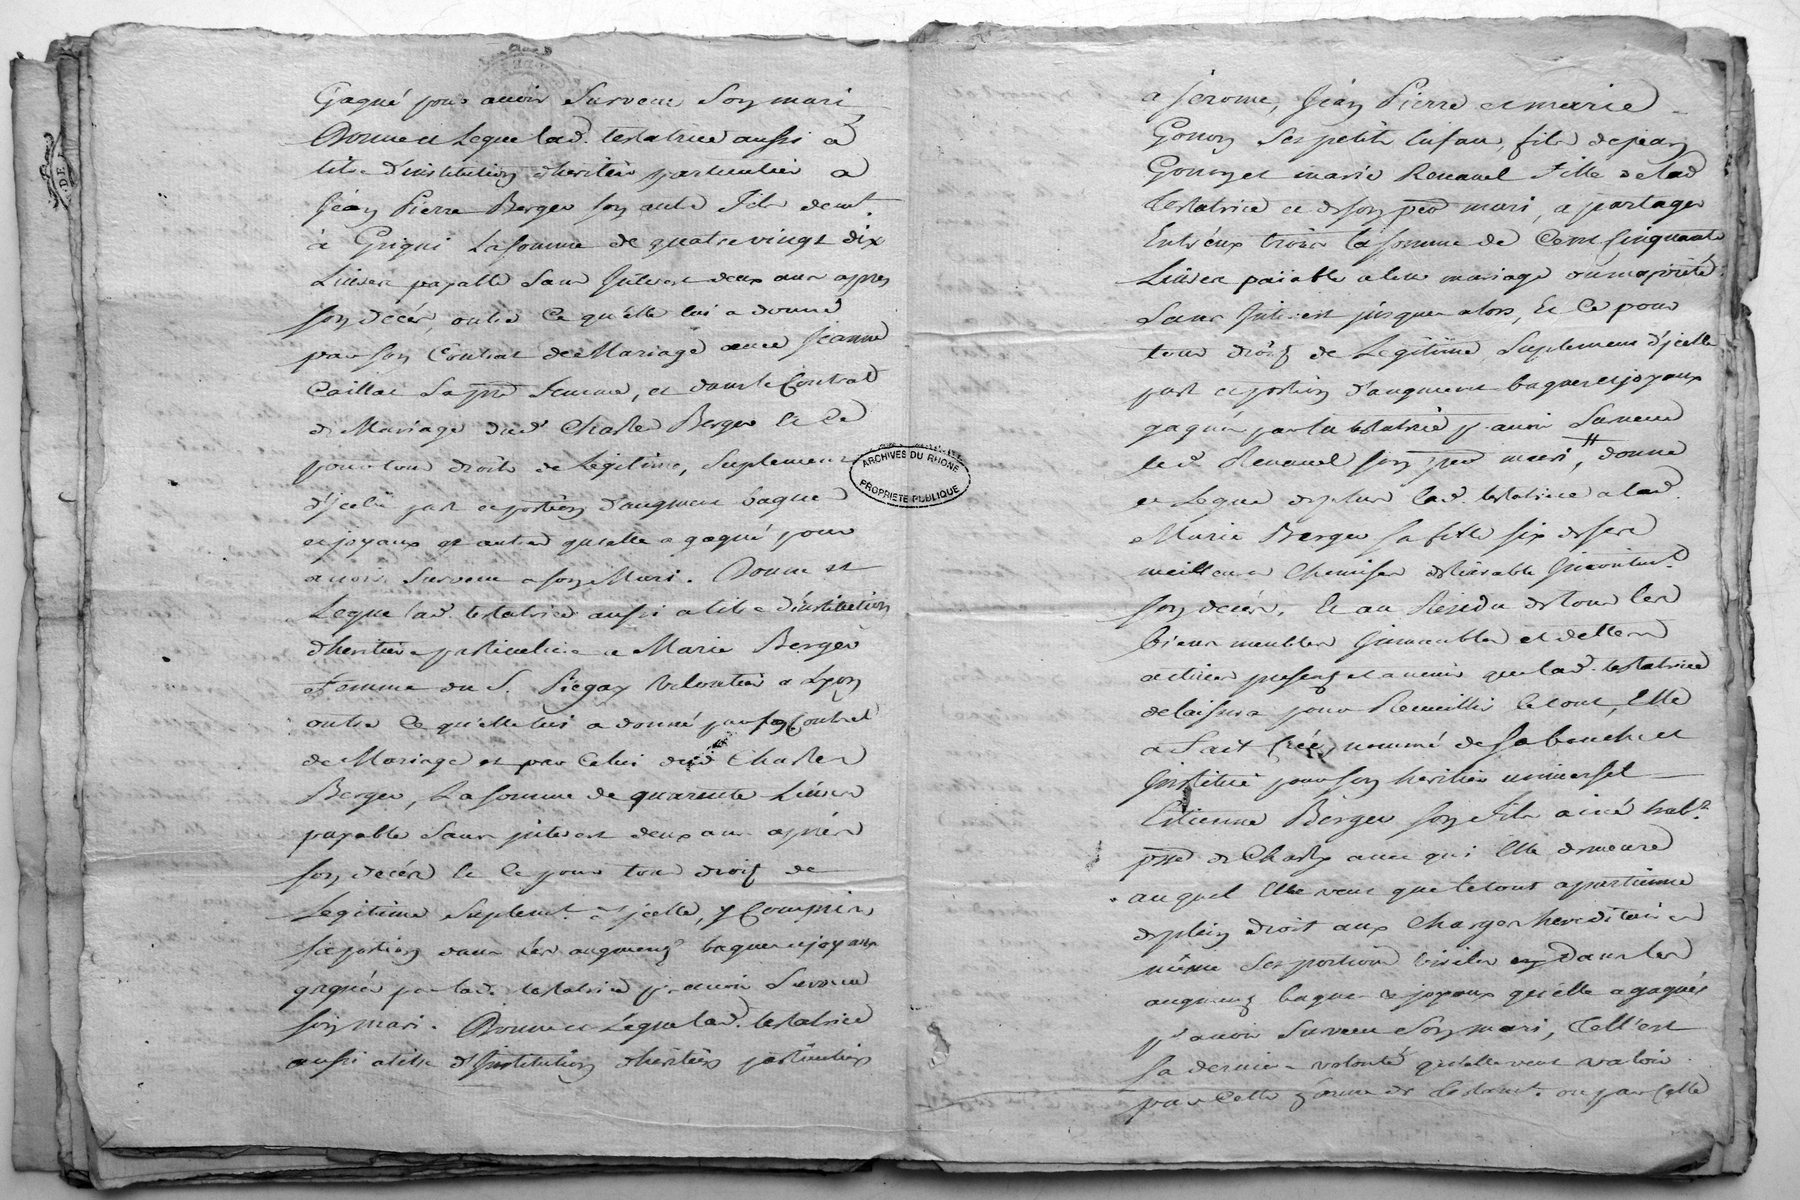 Gagné pour avoir Survecu Son mari
Donne et Legue lad. testatrice aussi a
titre d'institution d'heritier particulier a
Jean Pierre Berger son autre fils demt.
à Grigni La somme de quatre vingt dix
Livres payable Sans Interest deux ans apres
son décés, outre Ce qu'elle lui a donné
par son Contrat de Mariage avec Jeanne
Caillat Sa pnte femme, et dans le Contrat
de Mariage dud. Charles Berger Et Ce
pour tous droits de Legitime, Suplement
d'jcelle part et portion d'augment bague
et joyaux et autres qu'elle a gagné pour
avoir Survecu a son Mari. Donne et
Legue lad. testatrice aussi a titre d'institution
d'heritiere particuliere a Marie Berger
femme du S. Piegay Volontier a Lyon
outre Ce qu'elle lui a donné par son Contrat
de Mariage et par Celui dud. Charles
Berger, La somme de quarente Livres
payable Sans jnterest deux ans après
son decés Et Ce pour tous droits de
Legitime Suplemt. d'jcelle, y Compris
sa portion dans les augments bagues et joyaux
gagnés par lad. testatrice pr. avoir Survecu
son mari. Donne et Legue lad. testatrice
aussi a titre d'Institution d'heritiers particuliers
ARCHIVES DU RHONE
PROPRIETE PUBLIQUE
a Jerome, Jean Pierre et marie
Gonon Ses petits Enfans, fils de jean
Gonon et marie Renauel fille de lad.
testatrice et de son pr. mari, a partager
Entr'eux trois la somme de Cent Cinquante
Livres païable a leur mariage ou majorité
Sans Interest jusques alors, Et Ce pour
tous droits de Legitime Suplement d'jcelle
part et portion d'augment bagues et joyaux
gagnés par la testatrice pr. avoir Survecu
led. Renauel son pr. mari, donne
et Legue de plus lad. testatrice a lad.
Marie Berger sa fille six de ses
meilleures Chemises delivrable Incontint.
son decés. Et au Residu de tous les
biens meubles Immeubles et dettes
actives presents et avenir que lad. testatrice
delaissera pour Recueillir le tout, Elle
a fait Créé, nommé de sa bouche et
Institué pour son heritier universel
Etienne Berger son fils ainé habt.
psse de Charly avec qui Elle demeure
auquel Elle veut que le tout apartienne
de plein droit aux Charges hereditaires
même Ses portions viriles dans les
augments bagues et joyaux qu'elle a gagnés
pr. avoir Survecu Son mari, C'est
sa derniere volonté qu'elle veut valoir
par Cette forme de testamt. ou par Celle